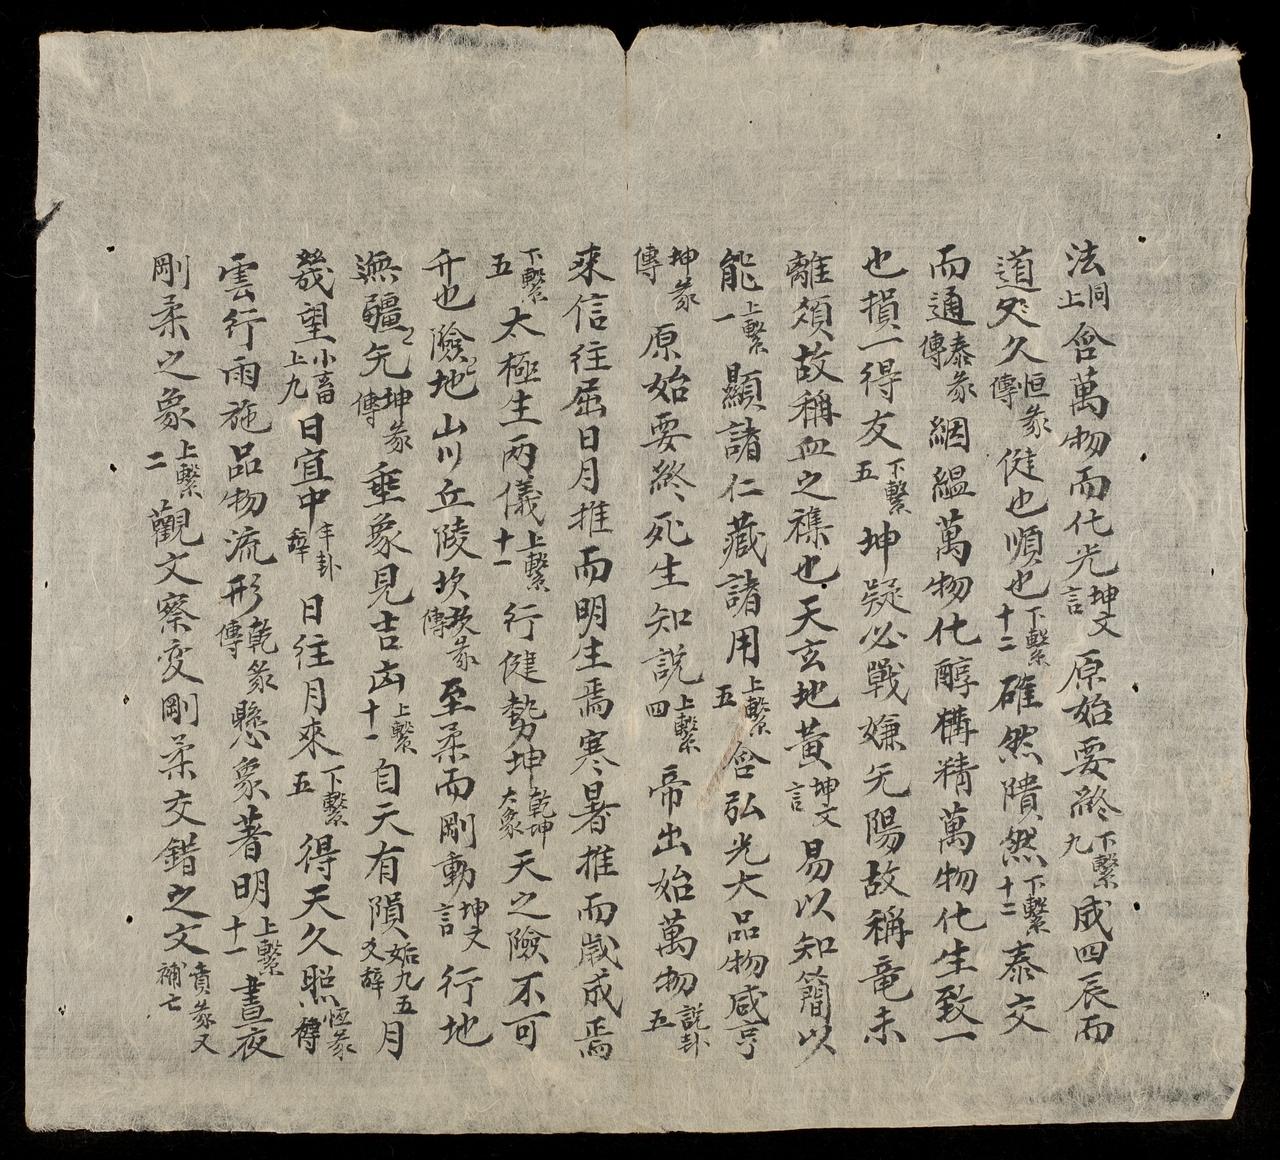 法同上含萬物而化光坤文言原始要終下繫九成四辰而
道久恒彖傳健也順也下繫十二確然隤然下繫十二泰交
而通泰彖傳絪縕萬物化醇構精萬物化生致一
也損一得友下繫五坤疑必戰嫌无陽故稱竜未
離類故稱血之襍也天玄地黃坤文言易以知簡以
能上繫一顯諸仁藏諸用上繫五含弘光大品物咸亨
坤彖傳原始要終死生知説上繫四帝出始萬物説卦五
來信往屈日月推而明生焉寒暑推而歲成焉
下繫五太極生两儀上繫十一行健勢坤乾坤大象天之險不可
升也險地山川丘陵坎坎彖傳至柔而剛動坤文言行地
無疆无坤彖傳垂象見吉凶上繫十一自天有隕姤九五爻辭月
幾望小畜上九日宜中丰卦辭日往月來下繫五得天久照恆彖傳
雲行雨施品物流形乾彖傳懸象著明上繫十一晝夜
剛柔之象上繫二觀文察变剛柔交錯之文賁彖又補亡